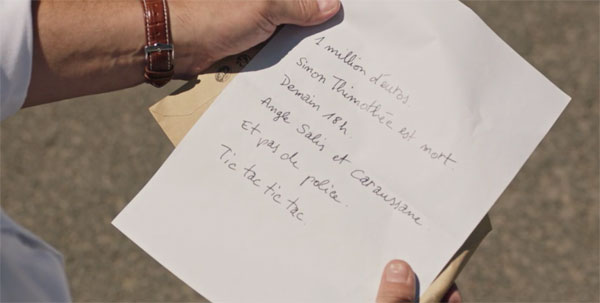 1 million d'euros.
Simon Thimothée est mort.
Demain 18h.
Angle Salis et Caraussane.
Et pas de police.
Tic tac tic tac.